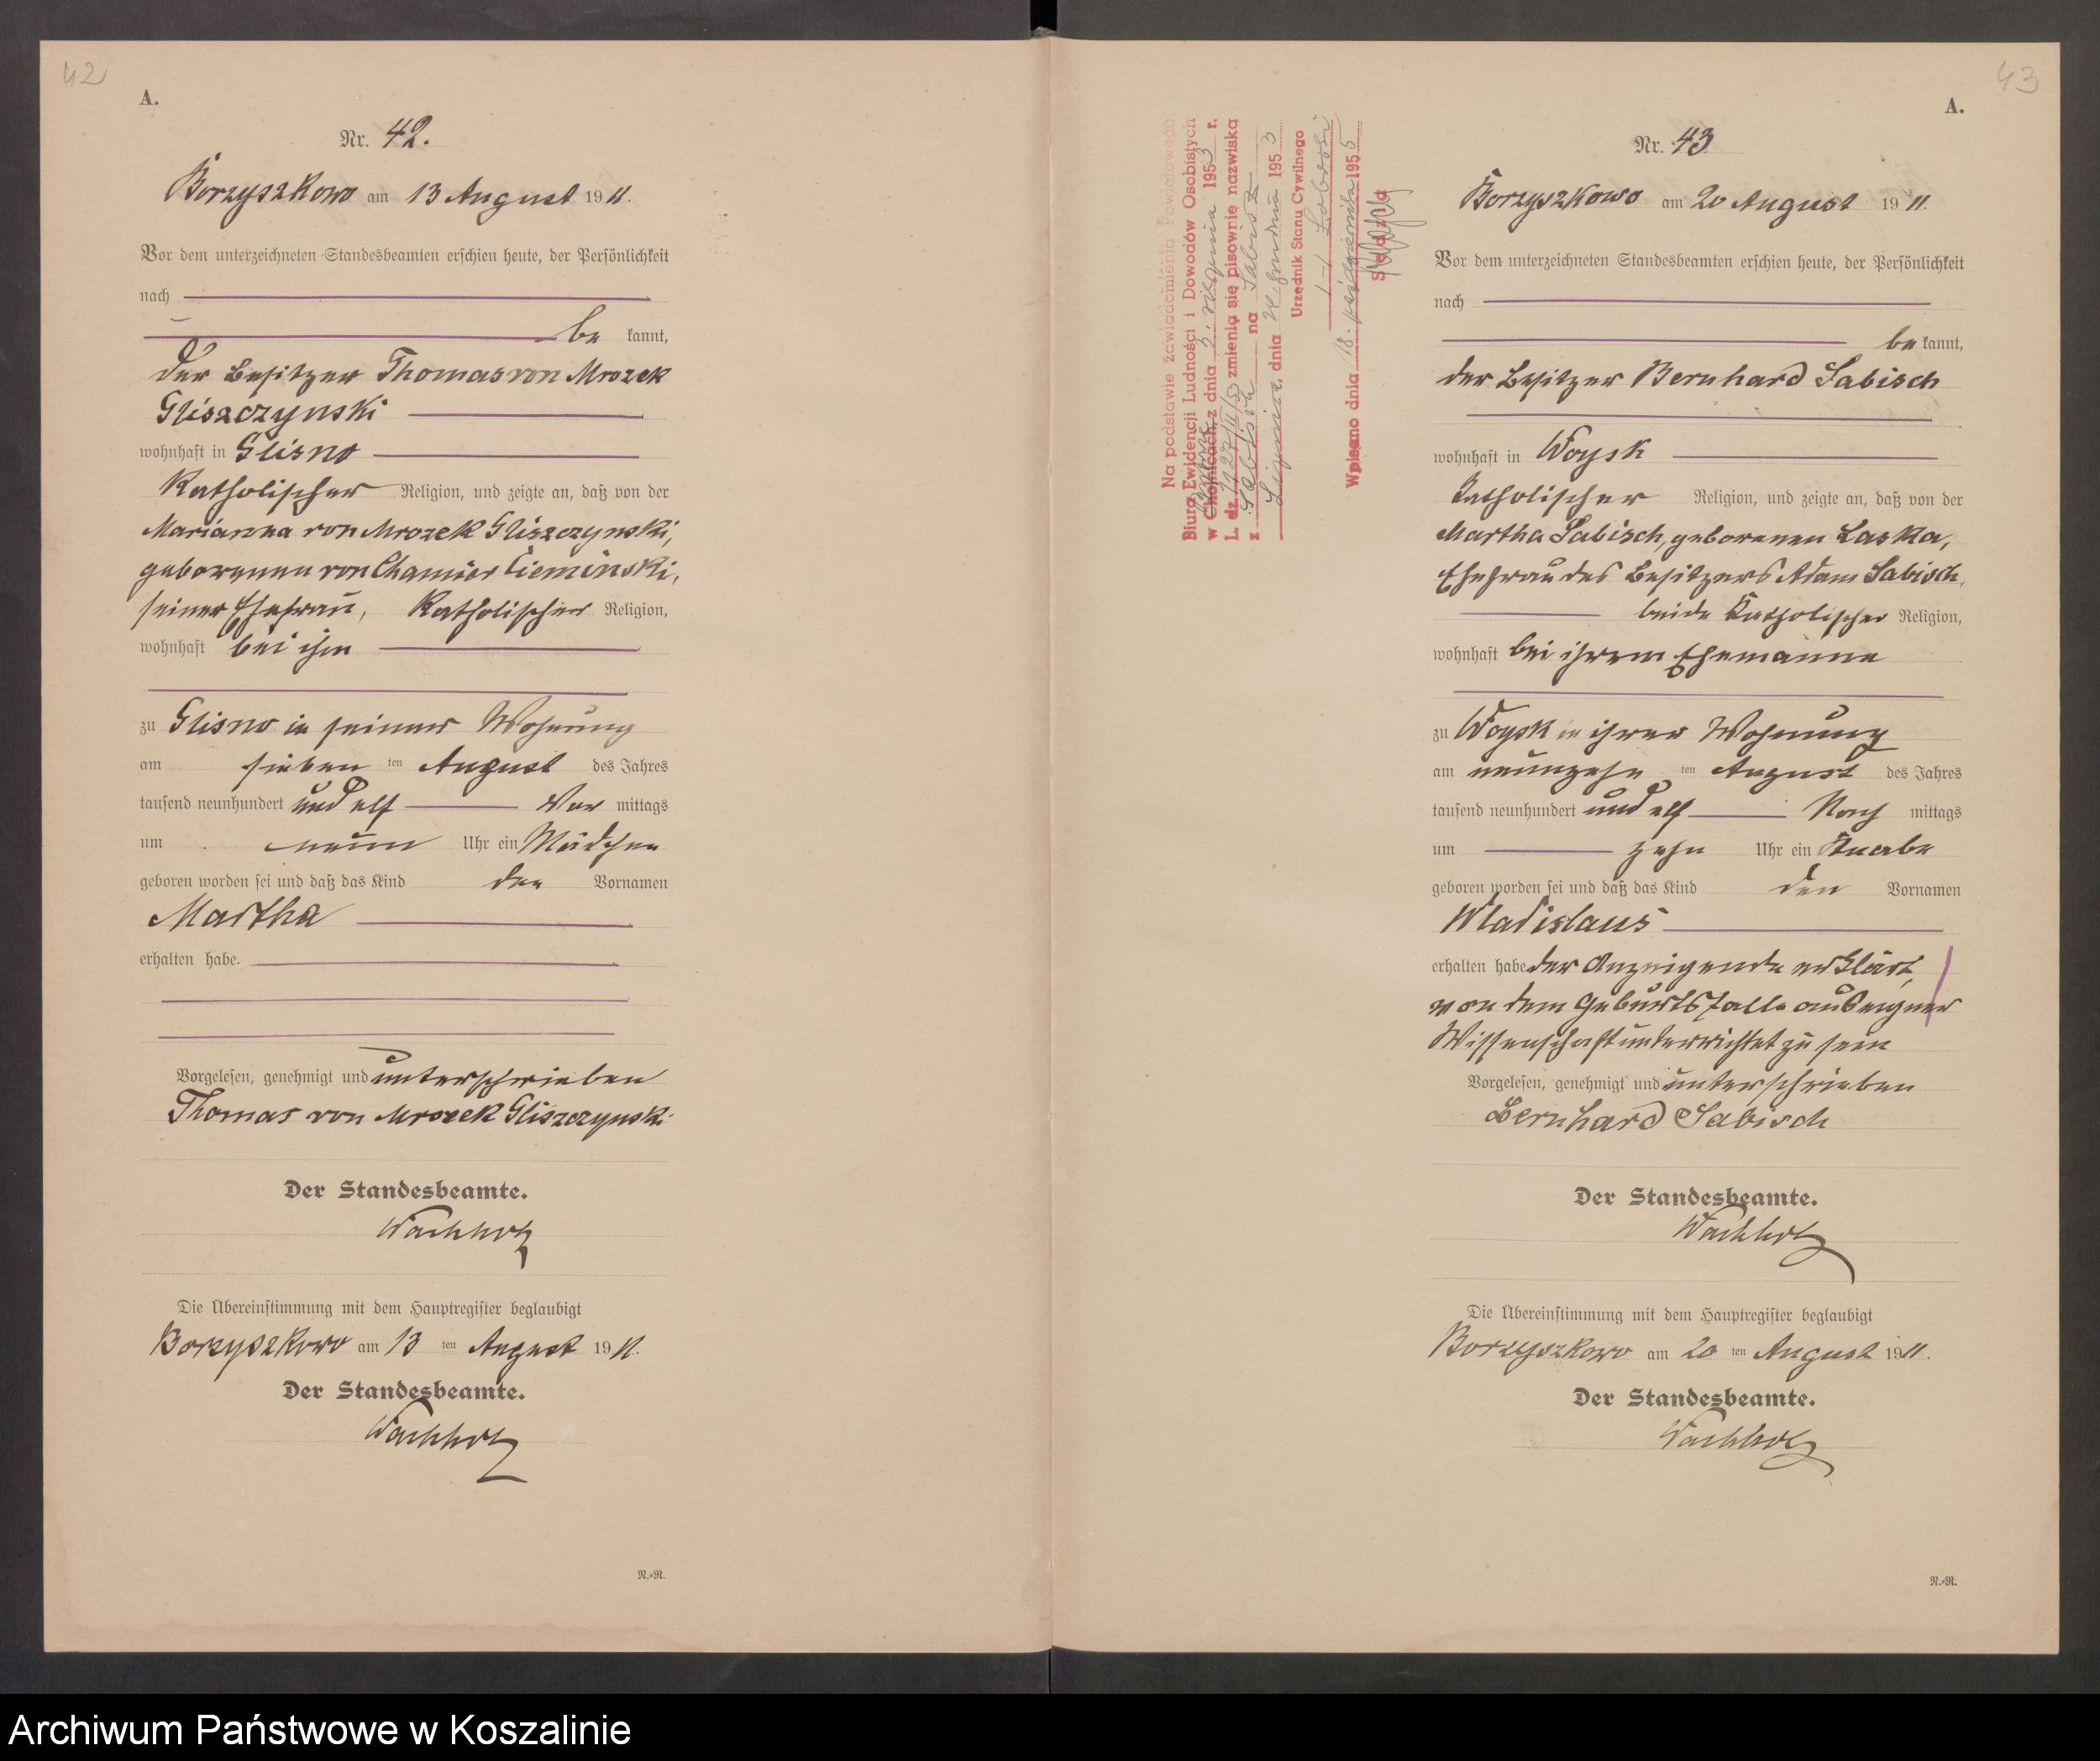 42
A.
Nr. 42.
Borzyszkowo am 13 August 1911.
Vor dem unterzeichneten Standesbeamten erschien heute, der Persönlichkeit
nach
be kannt,
der Besitzer Thomas von Mrozek
Gliszczynski
wohnhaft in Glisno
katholischer Religion, und zeigte an, daß von der
Marianna von Mrozek Gliszczynski,
geborenen von Chamier Cieminski,
seiner Ehefrau, katholischer Religion,
wohnhaft bei ihm
zu Glisno in seiner Wohnung
am sieben ten August des Jahres
tausend neunhundert und elf Vor mittags
um neun Uhr ein Mädchen
geboren worden sei und daß das Kind den Vornamen
Martha
erhalten habe.
Vorgelesen, genehmigt und unterschrieben
Thomas von Mrozek Gliszczynski
Der Standesbeamte.
Wachholz
Die Übereinstimmung mit dem Hauptregister beglaubigt
Borzyszkowo am 13 ten August 1911.
Der Standesbeamte.
Wachholz
R.=R.
43
A.
Nr. 43
Borzyszkowo am 20 August 1911.
Vor dem unterzeichneten Standesbeamten erschien heute, der Persönlichkeit
nach
be kannt,
der Besitzer Bernhard Sabisch
wohnhaft in Woysk
katholischer Religion, und zeigte an, daß von der
Martha Sabisch, geborenen Laska,
Ehefrau des Besitzers Adam Sabisch,
beide katholischer Religion,
wohnhaft bei ihrem Ehemanne
zu Woysk in ihrer Wohnung
am neunzehn ten August des Jahres
tausend neunhundert und elf Nach mittags
um zehn Uhr ein Knabe
geboren worden sei und daß das Kind den Vornamen
Wladislaus
erhalten habe der Anzeigende erklärt,
von dem Geburtsfalle aus eigner
Wissenschaft unterrichtet zu sein
Vorgelesen, genehmigt und unterschrieben
Bernhard Sabisch
Der Standesbeamte.
Wachholz
Die Übereinstimmung mit dem Hauptregister beglaubigt
Borzyszkowo am 20 ten August 1911.
Der Standesbeamte.
Wachholz
R.=R.
Na podstawie zawiadomienia Powiatowego
Biura Ewidencji Ludności i Dowodów Osobistych
w Chojnicach z dnia 2. sierpnia 1953 r.
L. dz. zmienia się pisownię nazwiska
z Sabisch na Sabisz
dnia 21 grudnia 1953
Urzędnik Stanu Cywilnego
Wpisano dnia 18. października 1955
Archiwum Państwowe w Koszalinie